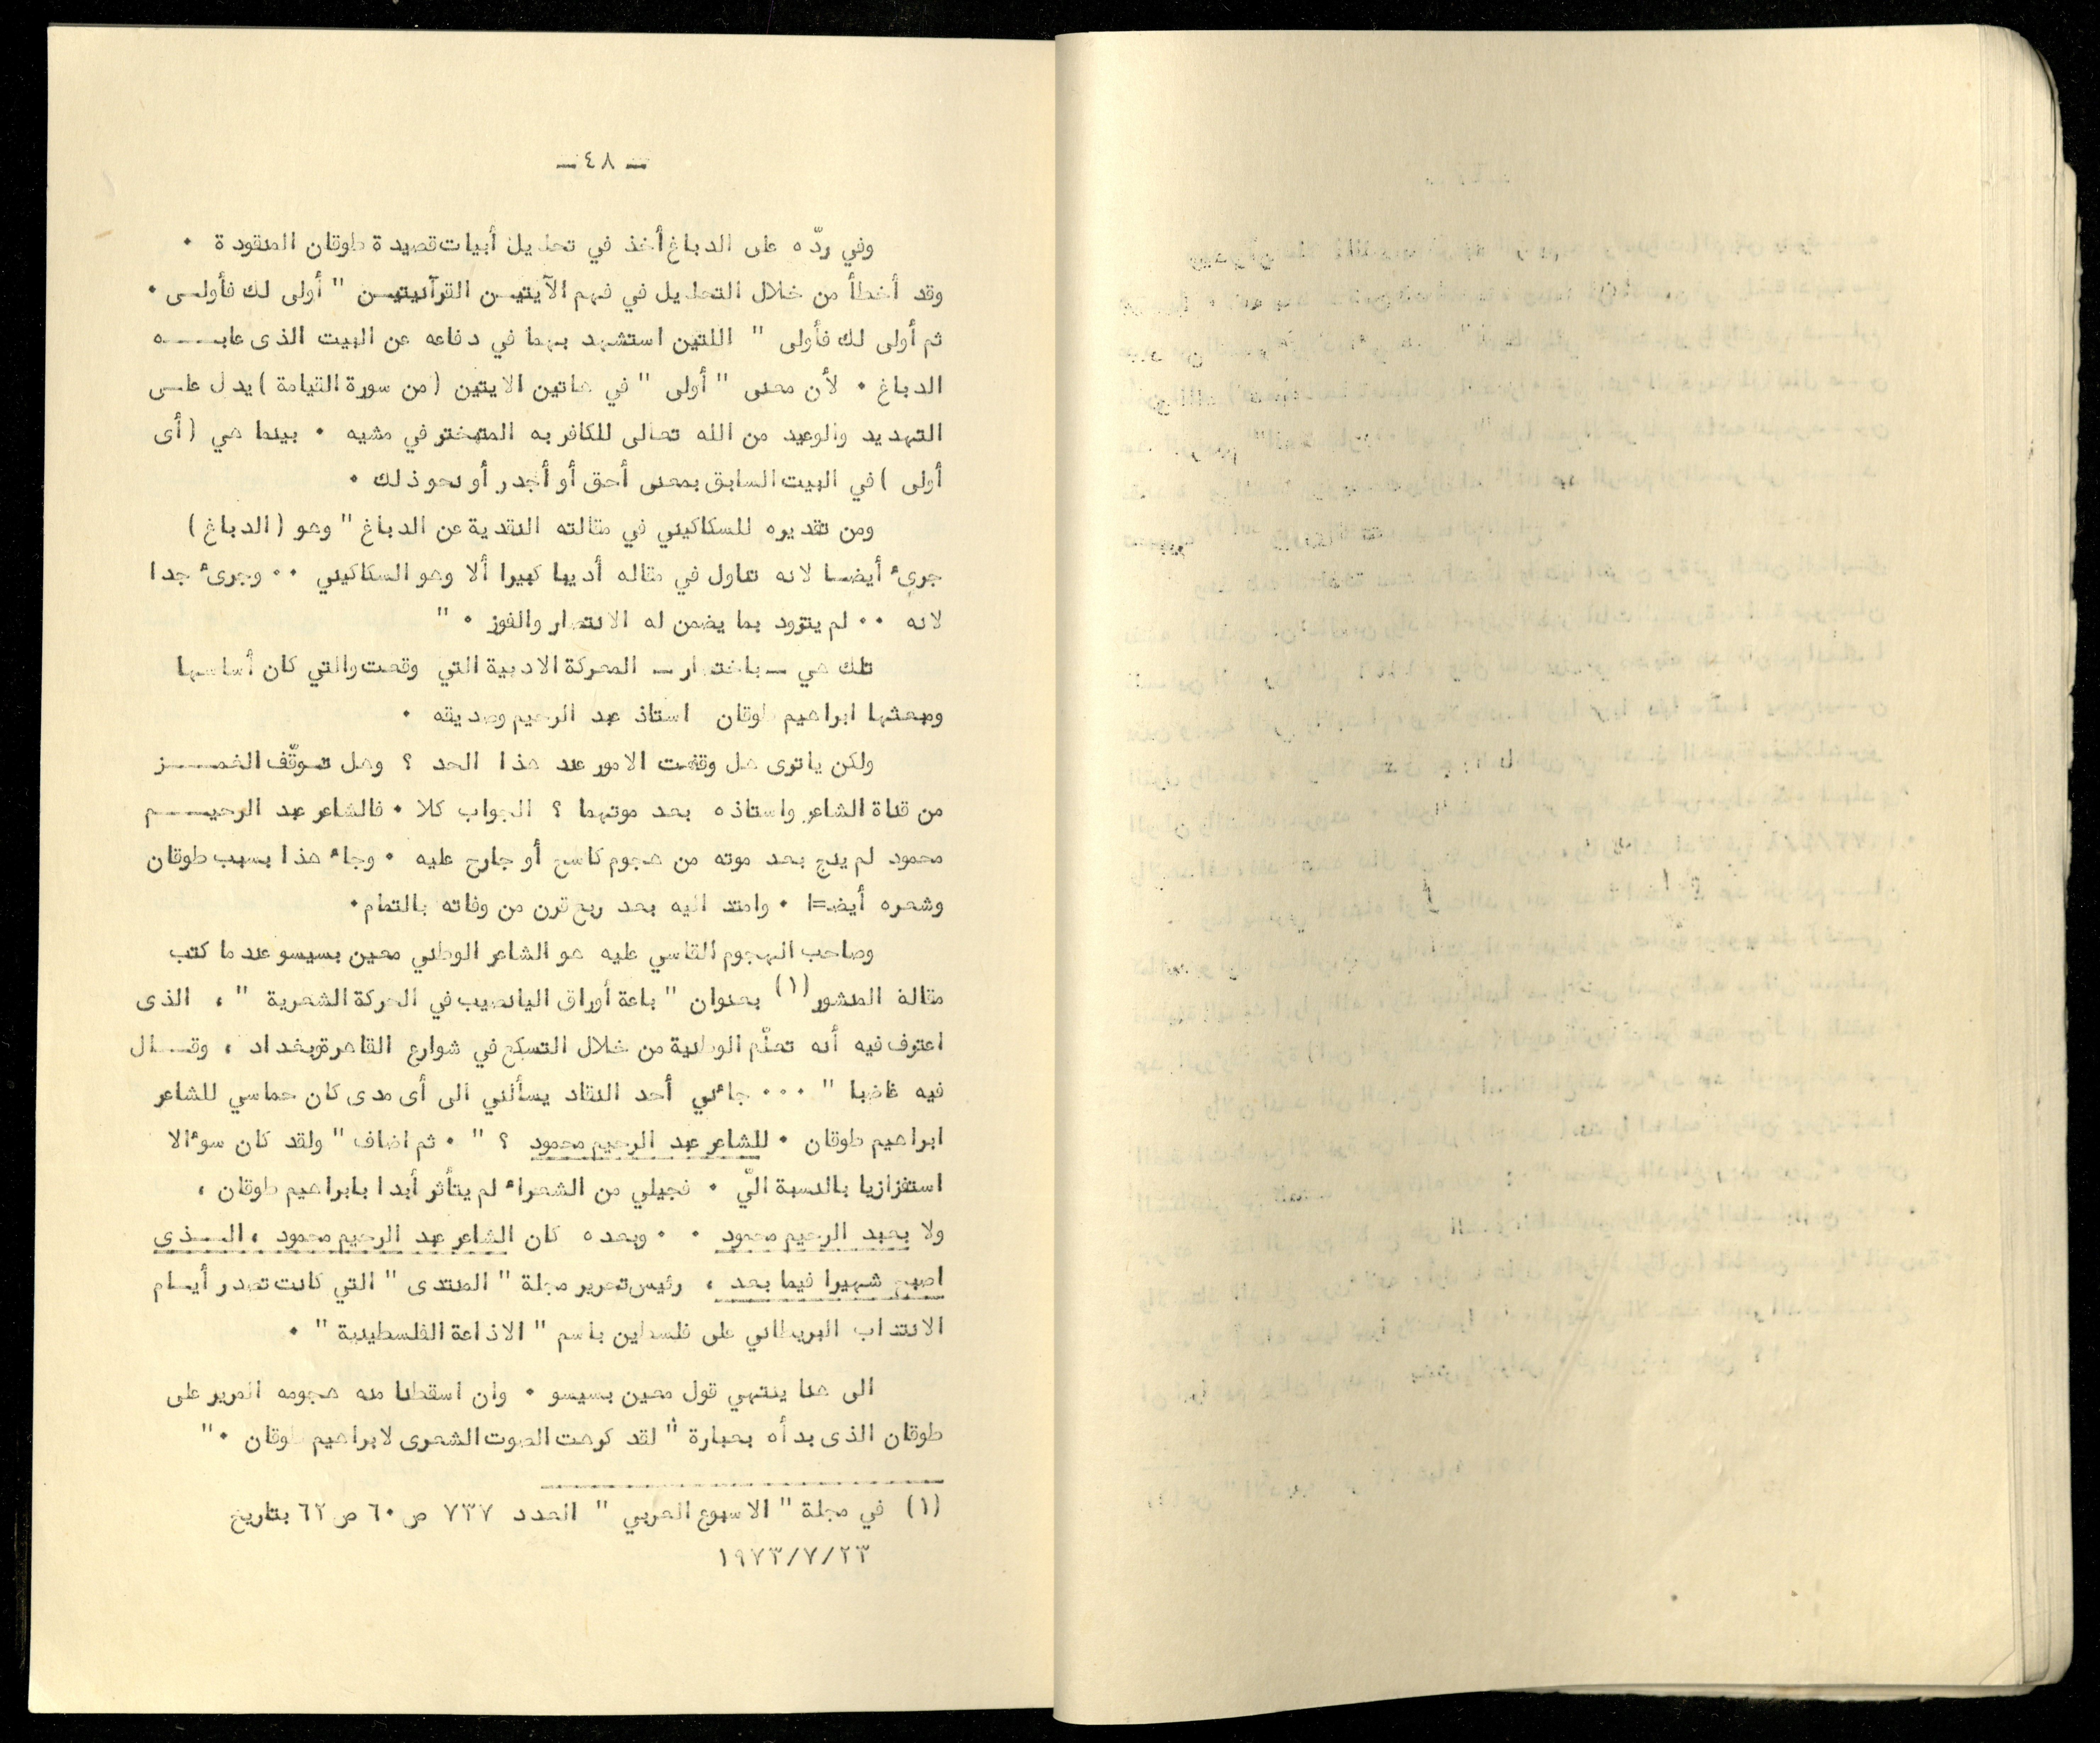 ـ ٤٨ ـ
وفي ردّه على الدباغ أخذ في تحليل أبيات قصيدة طوقان المنقودة ٠
وقد أخطأ من خلال التحليل في فهم الآيتيـن القرآنيتيـن " أولى لك فأولـى ٠
ثم أولى لك فأولى " اللتين استشهد بهما في دفاعه عن البيت الذى عابـــه
الدباغ ٠ لأن معنى " أولى " في هاتين الايتين ( من سورة القيامة ) يدل علـى
التهديد والوعيد من الله تعالى للكافر به المتبختر في مشيه ٠ بينما هي ( أى
أولى ) في البيت السابق بمعنى أحق أو أجدر أو نحو ذلك ٠
ومن تقديره للسكاكيني في مقالته النقدية عن الدباغ " وهو ( الدباغ )
جرىء أيضـا لانه تناول في مقاله أديبا كبيرا ألا وهو السكاكيني ٠٠ وجرىء جدا
لانه ٠٠ لم يتزود بما يضمن له الانتصار والفوز ٠ "
تلك هي ـ باختصار ـ المعركة الادبية التي وقعت والتي كان أساسها
ومبعثها ابراهيم طوقان استاذ عبد الرحيم وصديقه ٠
ولكن ياترى هل وقفت الامور عند هذا الحد ؟ وهل توقّف الغمـــز
من قناة الشاعر واستاذه بعد موتهما ؟ الجواب كلا ٠ فالشاعر عبد الرحيــم
محمود لم ينج بعد موته من هجوم كاسح أو جارح عليه ٠ وجاء هذا بسبب طوقان
وشعره أيضا ٠ وامتد اليه بعد ربع قرن من وفاته بالتمام٠
وصاحب الهجوم القاسي عليه هو الشاعر الوطني معين بسيسو عندما كتب
مقالة المنشور (١) بعنوان " باعة أوراق اليانصيب في الحركة الشعرية " ، الذى
اعترف فيه أنه تعلّم الوطنية من خلال التسكع في شوارع القاهرة وبغداد ، وقــال
فيه غاضبا " ٠٠٠ جاءني أحد النقاد يسألني الى أى مدى كان حماسي للشاعر
ابراهيم طوقان ٠ للشاعر عبد الرحيم محمود ؟ " ٠ ثم اضاف " ولقد كان سوءالا
استفزازيا بالنسبة اليّ ٠ فجيلي من الشعراء لم يتأثر أبدا بابراهيم طوقان ،
ولا بعبد الرحيم محمود ٠ ٠ وبعده كان الشاعر عبد الرحيم محمود ، الـــذى
اصبح شهيرا فيما بعد ، رئيس تحرير مجلة " المنتدى " التي كانت تصدر أيـام
الانتداب البريطاني على فلسطين باسم " الاذاعة الفلسطينية " ٠
الى هنا ينتهي قول معين بسيسو ٠ وان اسقطنا منه هجومه المرير على
طوقان الذى بدأه بعبارة " لقد كرهت الصوت الشعرى لابراهيم طوقان ٠ "
(١) في مجلة " الاسبوع العربي " العدد ٧٣٧ ص ٦٠ ص ٦٢ بتاريخ
١٩٧٣/٧/٢٣